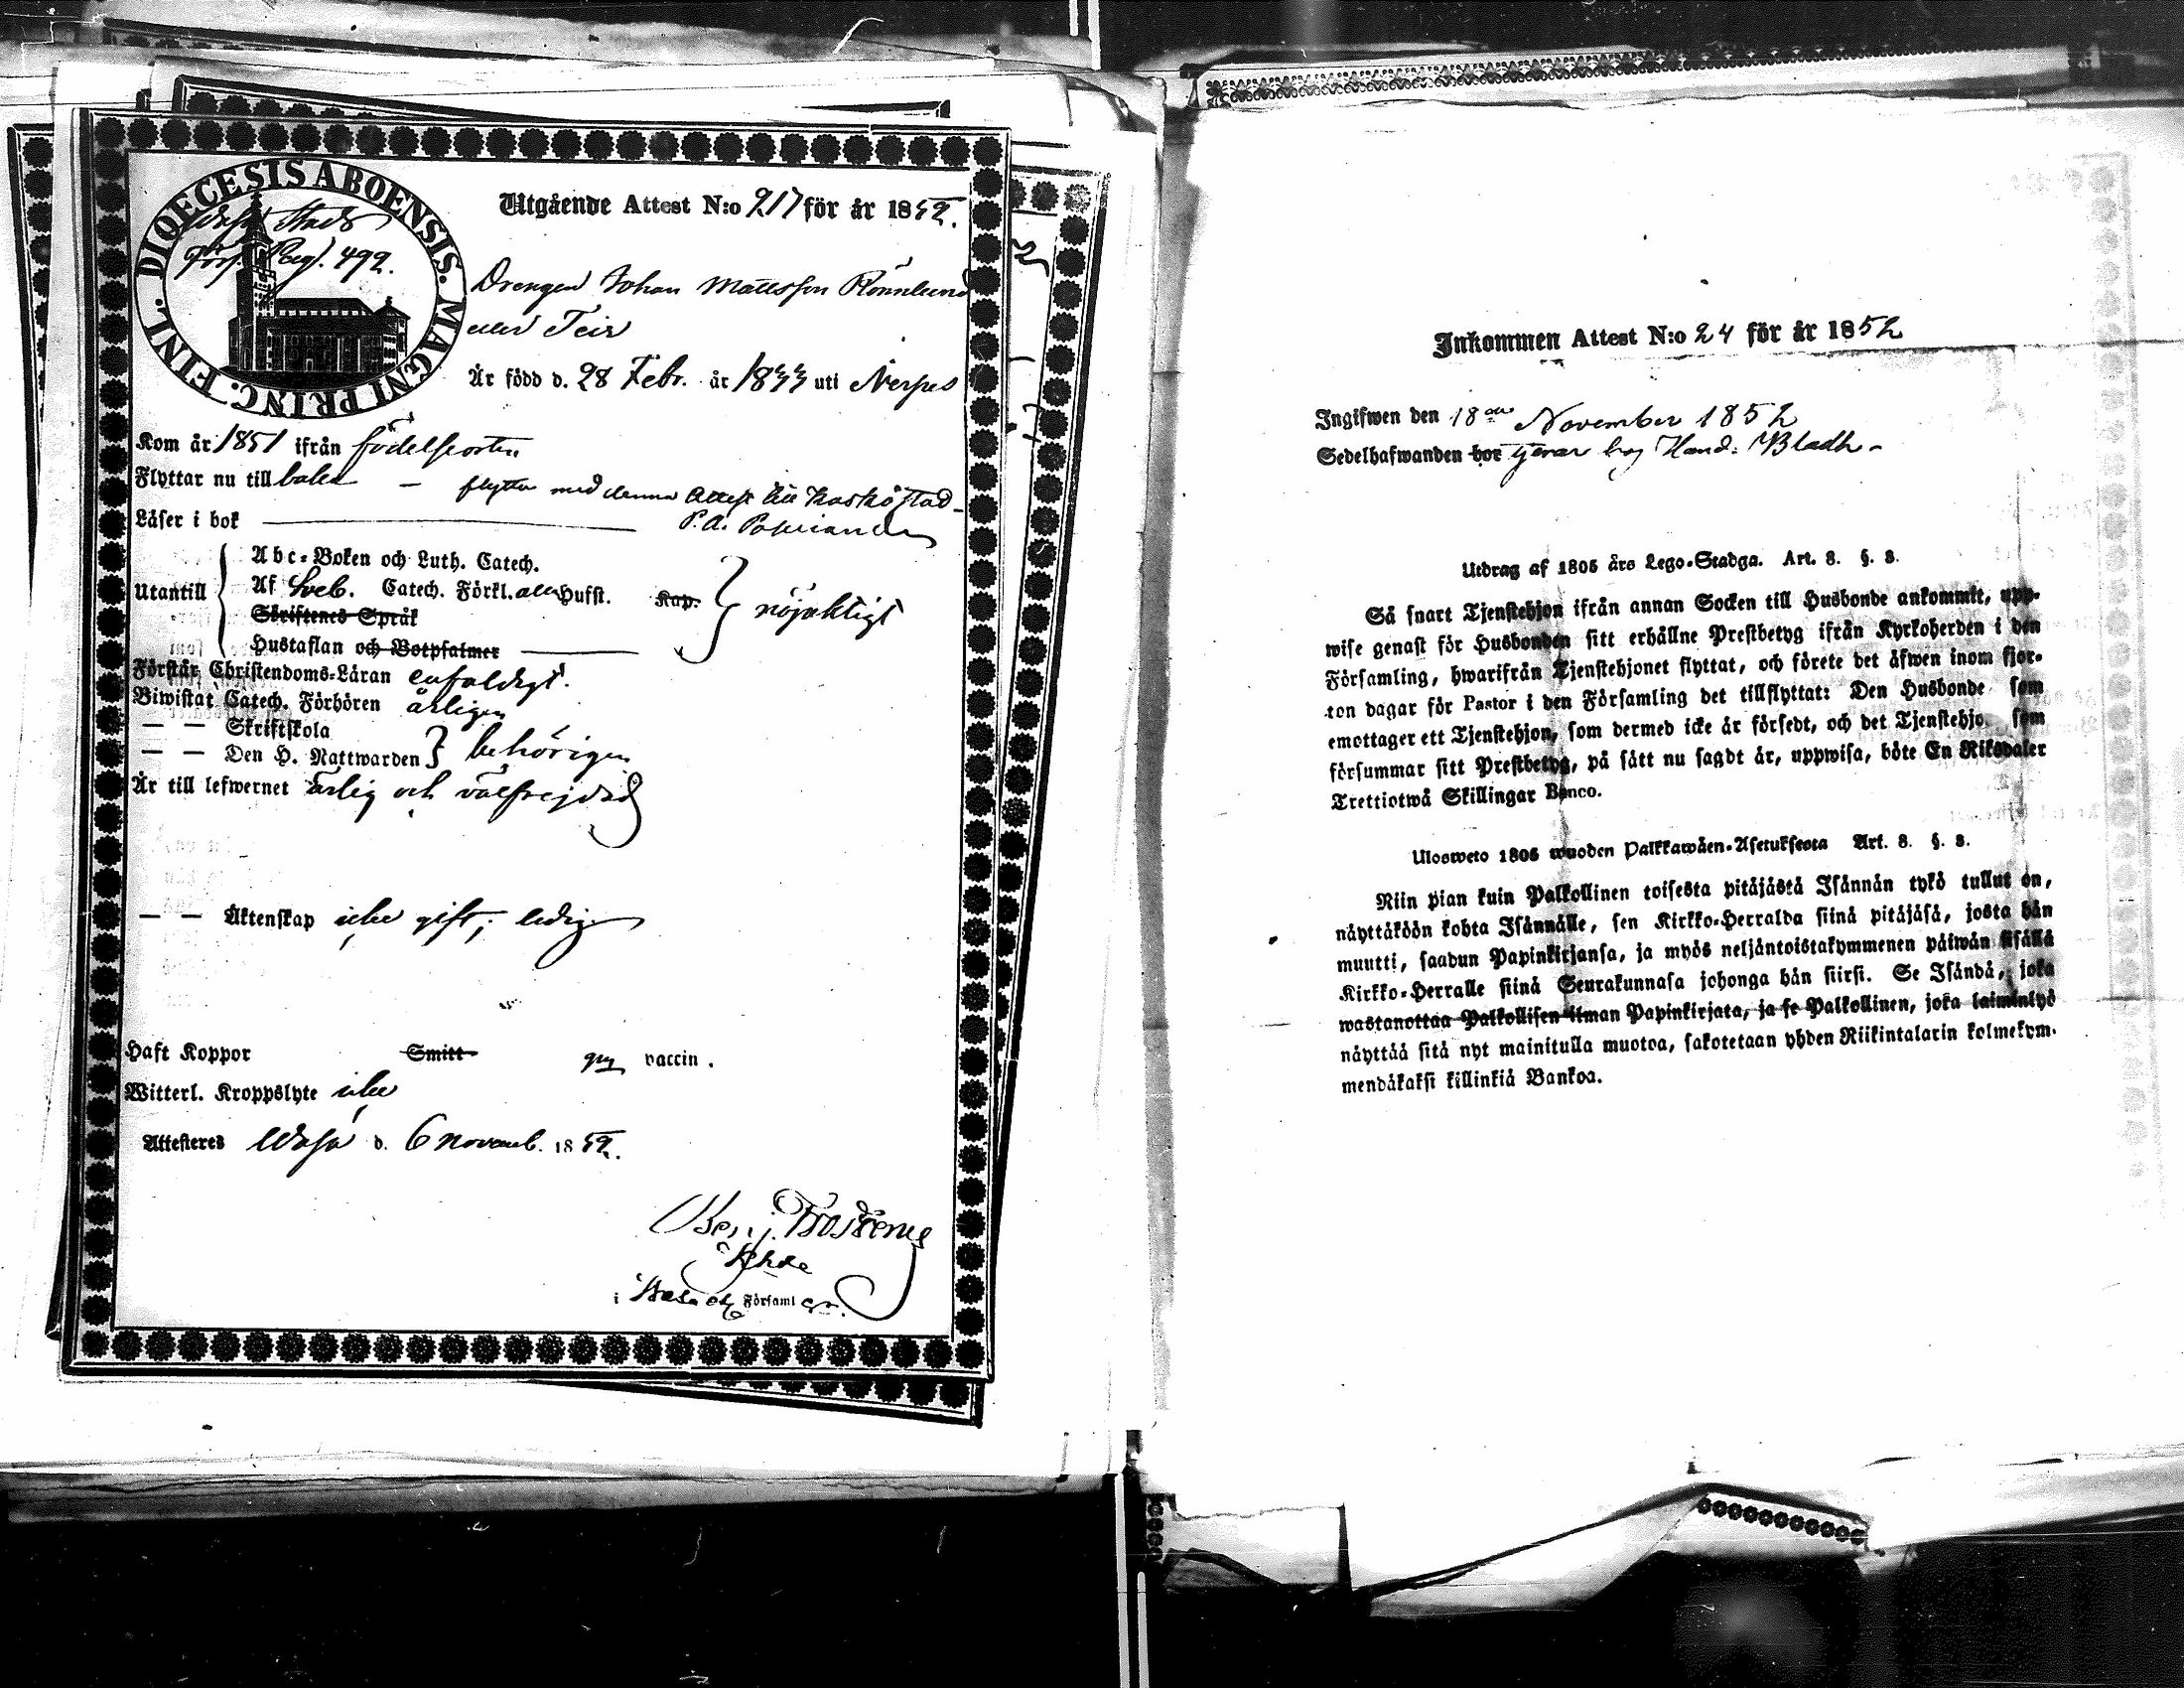 DIOECESIS ABOENSIS. MAGNI PRINC. FINL.
Wasa Stads
Förs. Pag. 492.
Utgående Attest N:o 217 för år 1852.
Drengen Johan Mattsson Rönnlund
eller Teir
Är född d. 28 Febr. år 1833 uti Nerpes
Kom år 1851 ifrån födelseorten
Flyttar nu till baka – flyttar med denna Attest till Kaskö stad
P. A.
Läser i bok
Utantill
Abc-Boken och Luth. Catech.
Af Sveb. Catech. Förkl. alla Hufst. Kap.
nöjaktigt
Skriftenes Språk
Hustaflan och Botpsalmer
Förstår Christendoms-Läran enfaldigt.
Biwistat Catech. Förhören årligen
— — Skriftskola
— — Den H. Nattwarden
behörigen
Är till lefwernet ärlig och välfrejdad
— — Äktenskap icke gift; ledig
Haft Koppor Smitt vaccin.
Witterl. Kroppslyte icke
Attesteres Wasa d. 6 novemb. 1852.
Benj. Frosterus
i Wasa Församl
Inkommen Attest N:o 24 för år 1852
Ingifwen den 18de November 1852
Sedelhafwanden bor tjenar hos Hand: Bladh
Utdrag af 1805 års Lego-Stadga. Art. 8. §. 3.
Så snart Tjenstehjon ifrån annan Socken till Husbonde ankommit, upp-
wise genast för Husbonden sitt erhållne Prestbetyg ifrån Kyrkoherden i den
Församling, hwarifrån Tjenstehjonet flyttat, och förete det äfwen inom fjor-
ton dagar för Pastor i den Församling det tillflyttat: Den Husbonde som
emottager ett Tjenstehjon, som dermed icke är försedt, och det Tjenstehjo som
försummar sitt Prestbetyg, på sätt nu sagdt är, uppwisa, böte En Riksdaler
Trettiotwå Skillingar Banco.
Ulosweto 1805 wuoden Palkkawäen-Asetuksesta Art. 8. §. 3.
Niin pian kuin Palkollinen toisesta pitäjästä Isännän tykö tullut on,
näyttäköön kohta Isännälle, sen Kirkko-Herralda siinä pitäjäsä, josta hän
muutti, saadun Papinkirjansa, ja myös neljäntoistakymmenen päiwän sisällä
Kirkko-Herralle siinä Seurakunnasa johonga hän siirsi. Se Isändä, joka
wastanottaa Palkollisen ilman Papinkirjata, ja se Palkollinen, joka laiminlyö
näyttää sitä nyt mainitulla muotoa, sakotetaan yhden Riikintalarin kolmekym-
mendäkaksi killinkiä Bankoa.